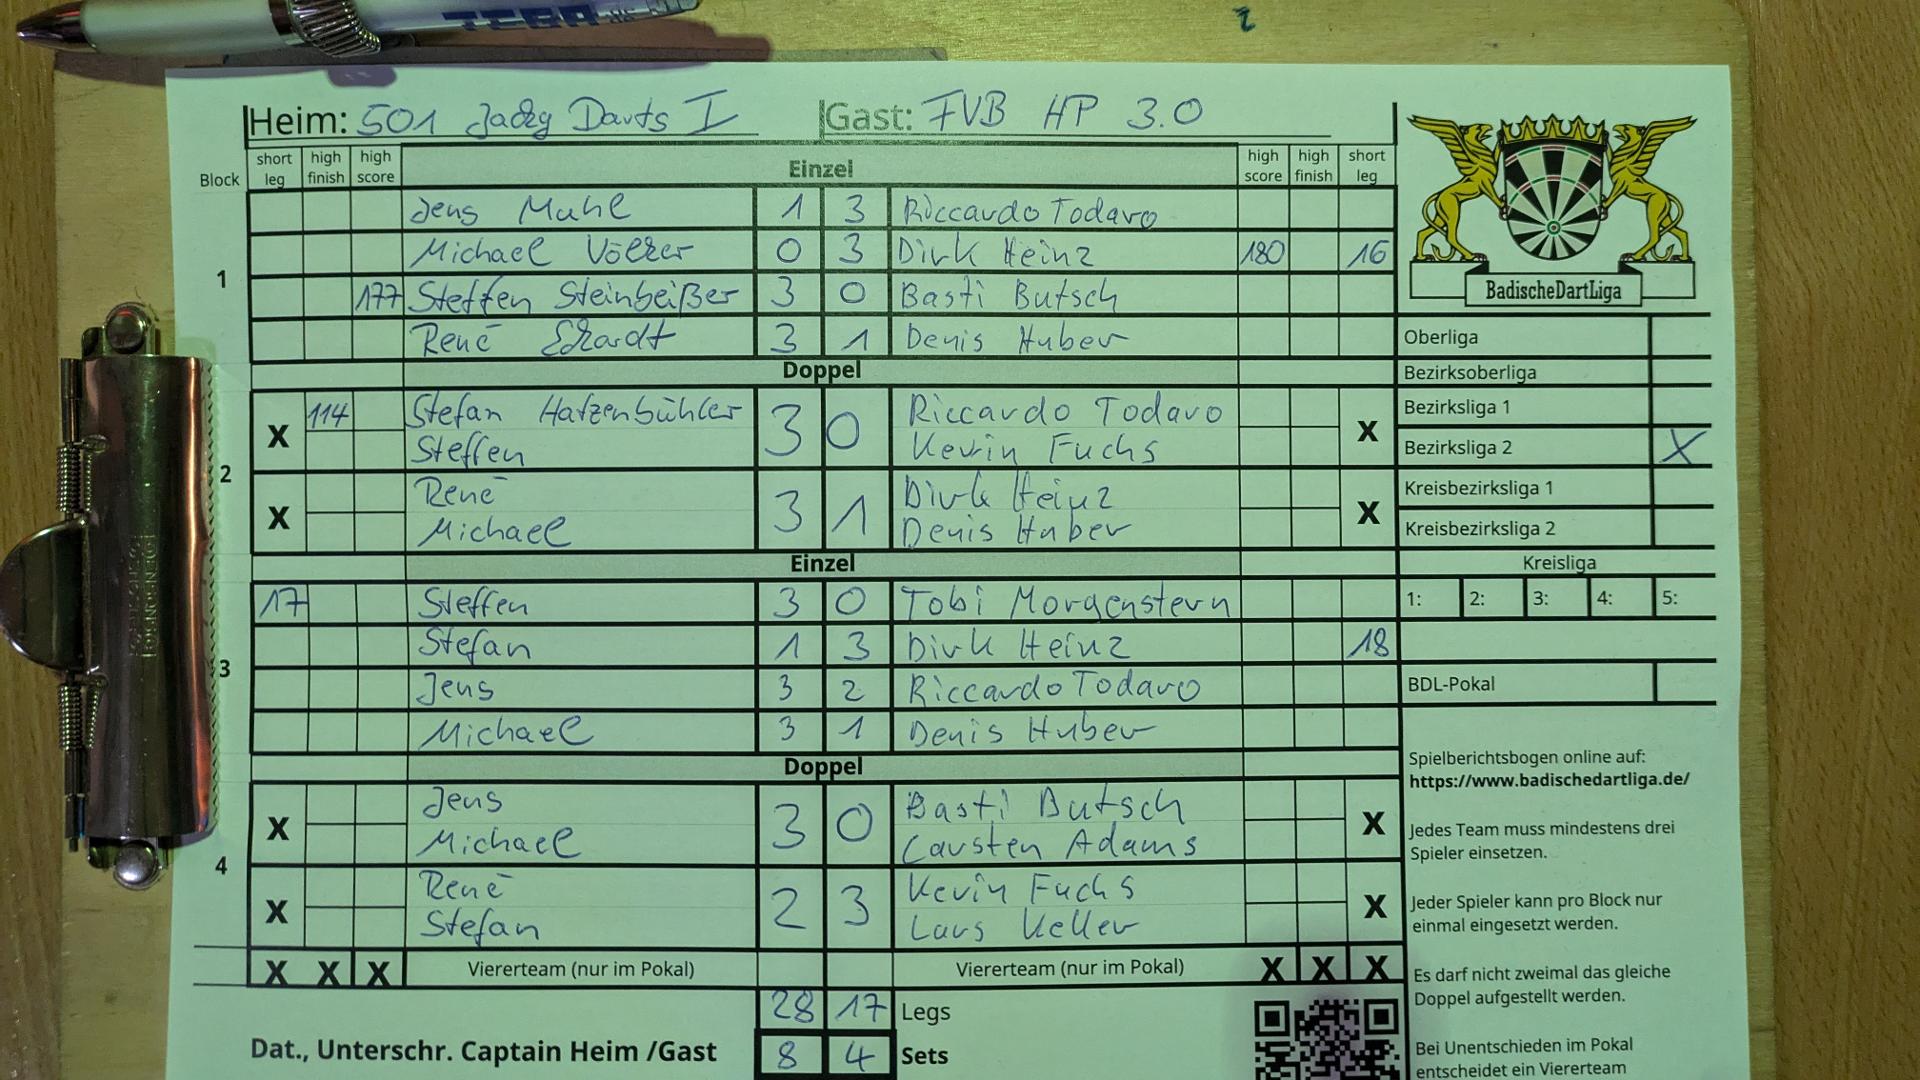 Heim: 501 Jackg Darts I Gast: FVB HP 3.0
Block short leg high finish high score Einzel high score high finish short leg
1
Jens Muhl 1 3 Riccardo Todaro
Michael Völker 0 3 Dirk Heinz 180 16
177 Steffen Steinbeißer 3 0 Basti Butsch
René Eckardt 3 1 Denis Huber
Doppel
2
X 114 Stefan Hatzenbühler 3 0 Riccardo Todaro X
Steffen Kevin Fuchs
X René 3 1 Dirk Heinz X
Michael Denis Huber
Einzel
3
17 Steffen 3 0 Tobi Morgenstern
Stefan 1 3 Dirk Heinz 18
Jens 3 2 Riccardo Todaro
Michael 3 1 Denis Huber
Doppel
4
X Jens 3 0 Basti Butsch X
Michael Carsten Adams
X René 2 3 Kevin Fuchs X
Stefan Lars Keller
X X X Viererteam (nur im Pokal) Viererteam (nur im Pokal) X X X
28 17 Legs
Dat., Unterschr. Captain Heim /Gast 8 4 Sets
BadischeDartLiga
Oberliga
Bezirksoberliga
Bezirksliga 1
Bezirksliga 2 X
Kreisbezirksliga 1
Kreisbezirksliga 2
Kreisliga
1: 2: 3: 4: 5:
BDL-Pokal
Spielberichtsbogen online auf:
https://www.badischedartliga.de/
Jedes Team muss mindestens drei
Spieler einsetzen.
Jeder Spieler kann pro Block nur
einmal eingesetzt werden.
Es darf nicht zweimal das gleiche
Doppel aufgestellt werden.
Bei Unentschieden im Pokal
entscheidet ein Viererteam